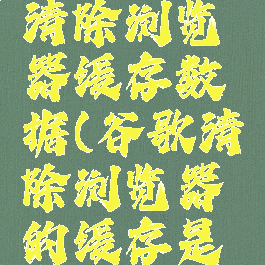 清除浏览
器缓存数
据(谷歌清
除浏览器
的缓存是